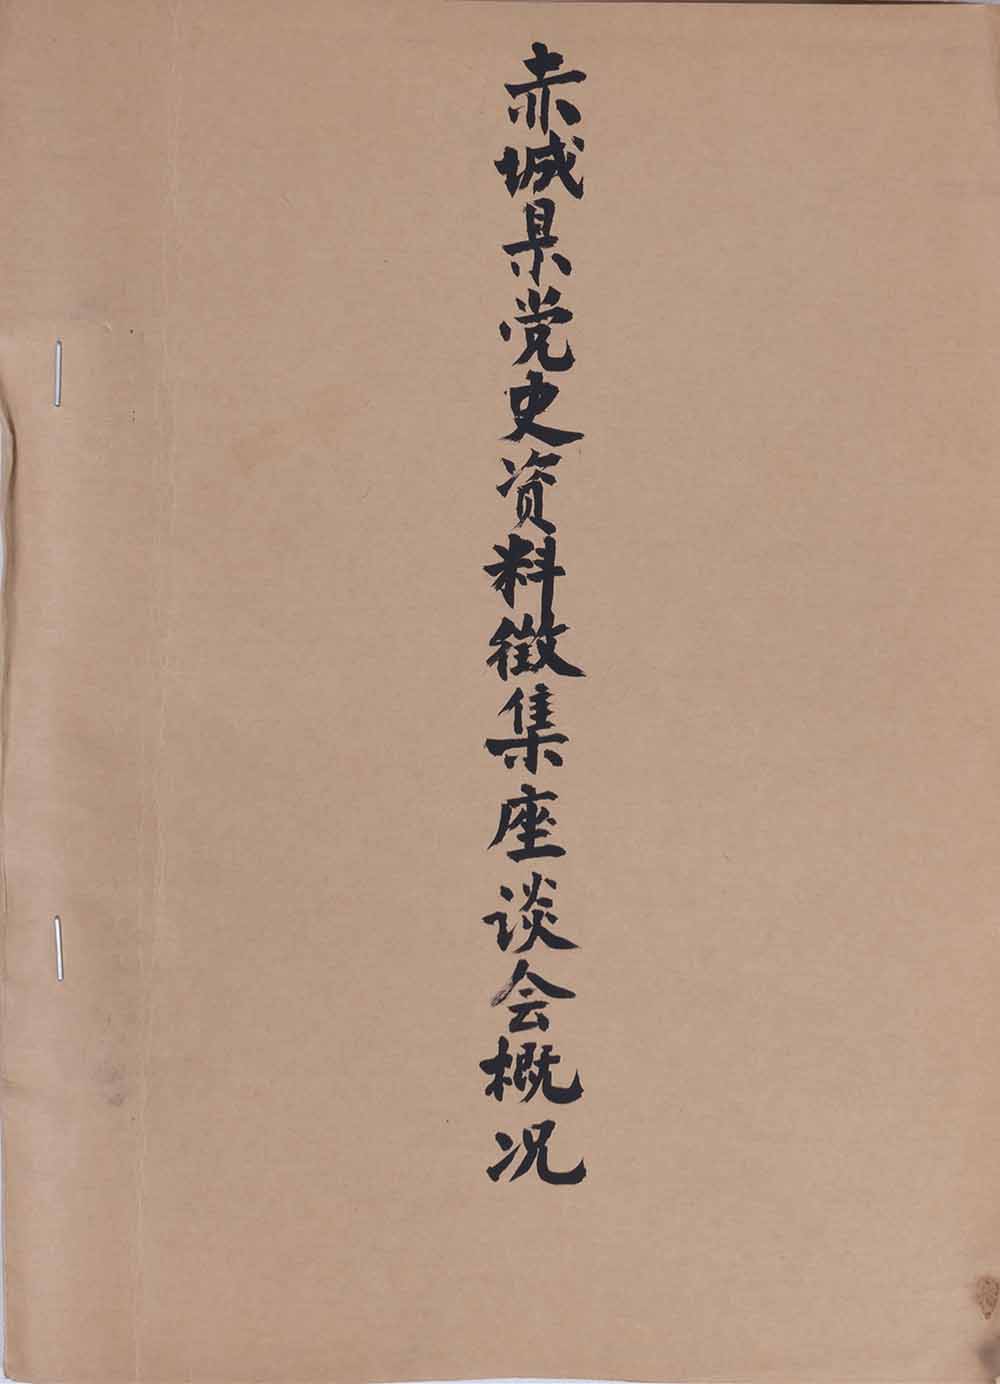 赤城县党史资料徵集座谈会概况